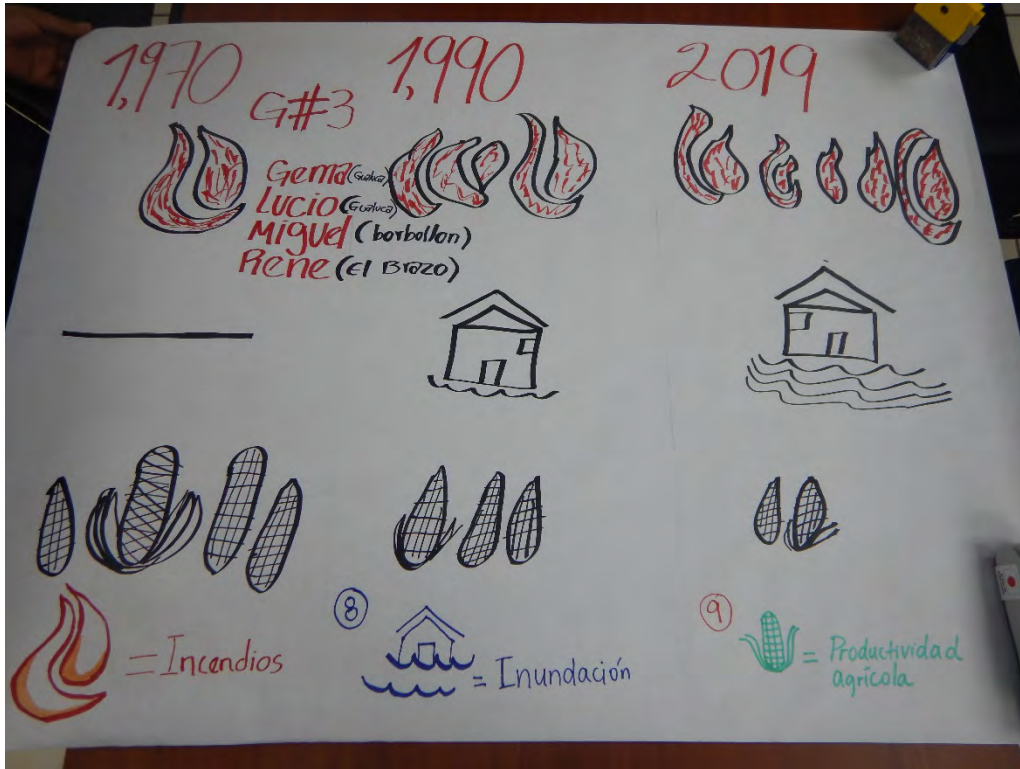 1,970
1,990
2019
G#3
Gema (Gualuca)
Lucio (Gualuca)
Miguel (borbollon)
Rene (El Brazo)
= Incendios
8
= Inundación
9
= Productividad
agrícola